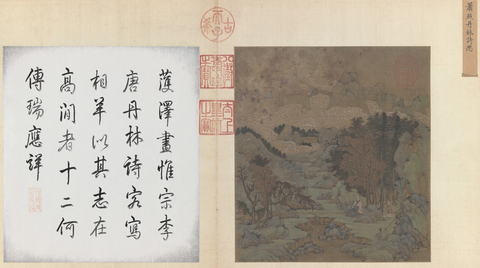 蕭照丹林詩思
濩澤畫惟宗李
唐丹林詩客寫
相羊以其志在
高閒者十二何
傳瑞應詳